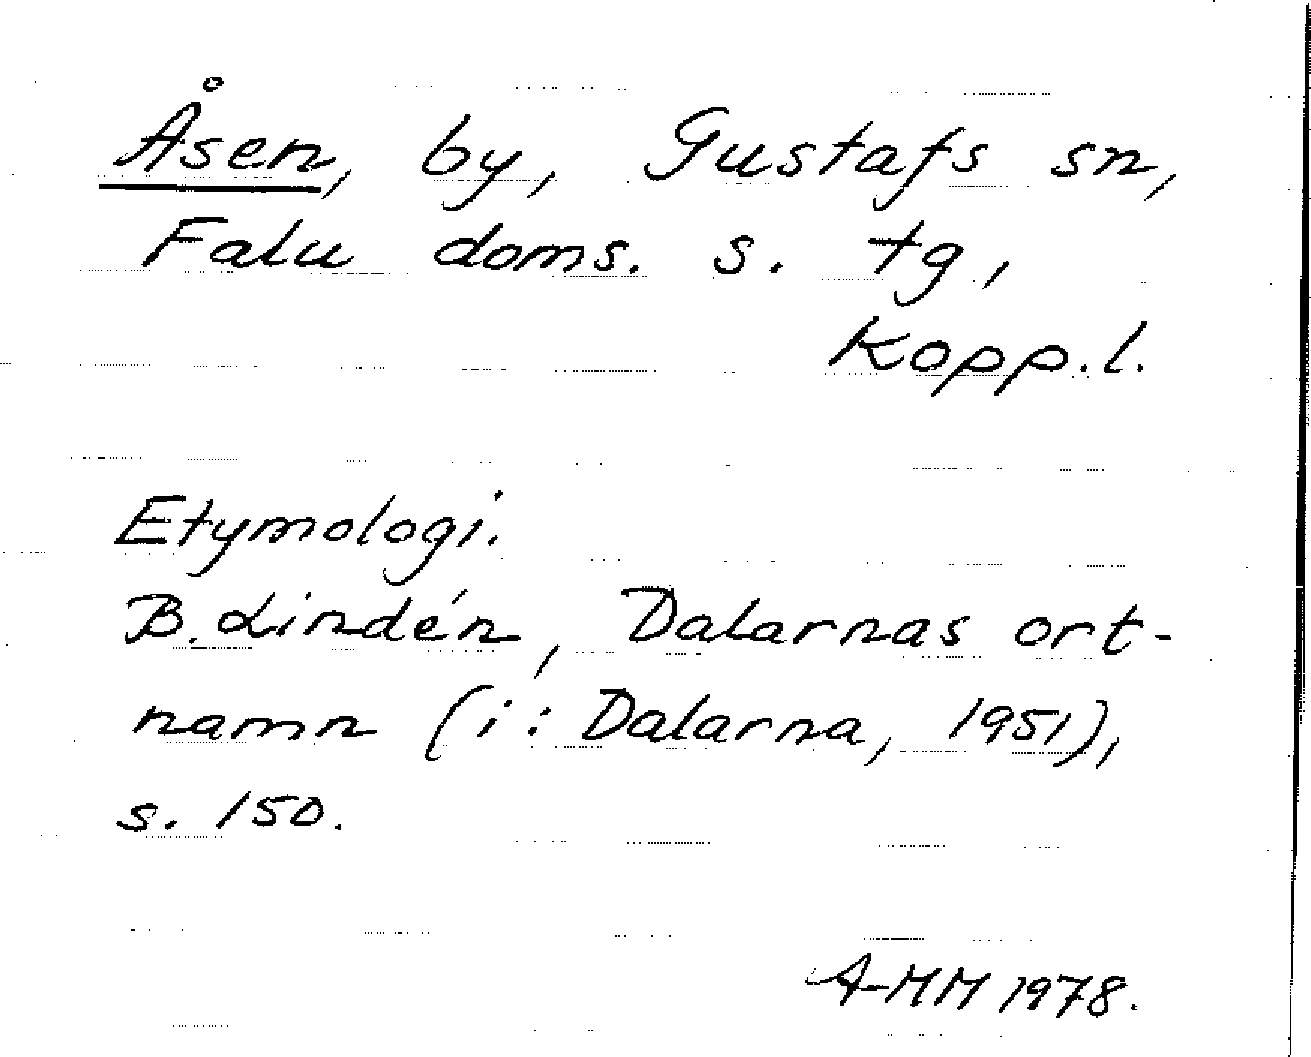 Åsen, by, Gustafs sn,
Falu doms. s. tg,
Kopp.l.
Etymologi.
B. Lindén, Dalarnas ort-
namn (i: Dalarna, 1951),
s. 150.
A-MM 1978.